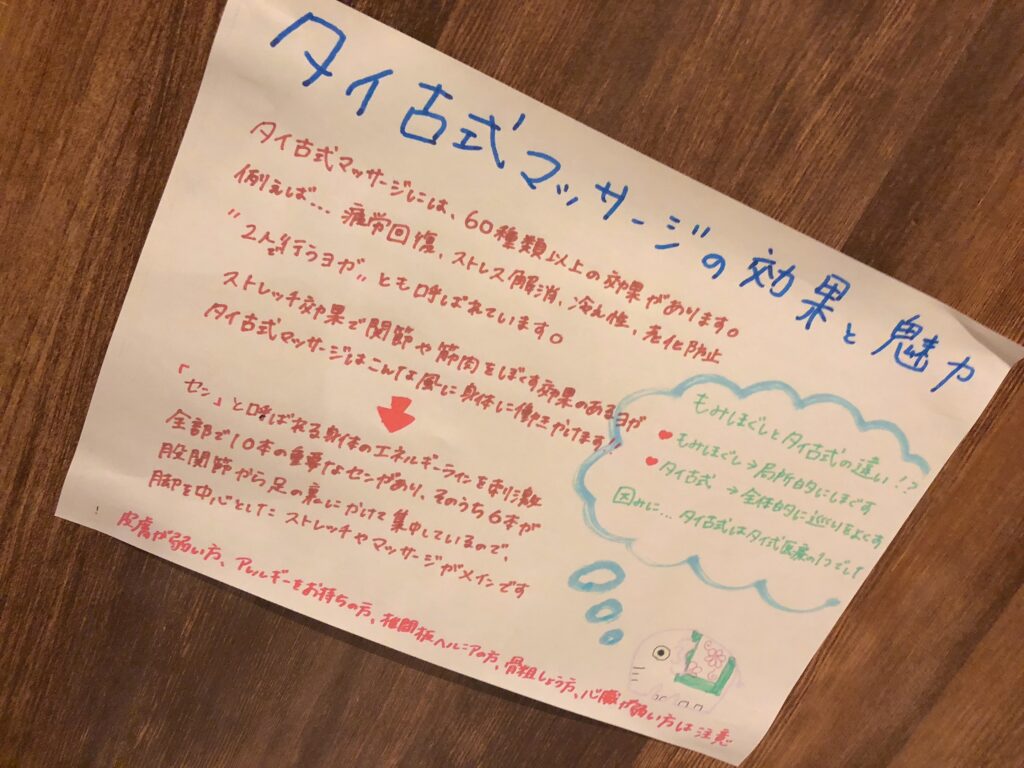 タイ古式マッサージの効果と魅力
タイ古式マッサージには、60種類以上の効果があります。
例えば… 疲労回復、ストレス解消、冷え性、老化防止
"2人で行うヨガ"とも呼ばれています。
ストレッチ効果で関節や筋肉をほぐす効果のあるヨガ
タイ古式マッサージはこんな風に身体に働きかけます!
「セン」と呼ばれる身体のエネルギーラインを刺激
全部で10本の重要なセンがあり、そのうち6本が
股関節から足の裏にかけて集中しているので、
脚を中心としたストレッチやマッサージがメインです
もみほぐしとタイ古式の違い!?
♥もみほぐし→局所的にほぐす
♥タイ古式→全体的に巡りをよくす
因みに…タイ古式はタイ式医療の1つでして
皮膚が弱い方、アレルギーをお持ちの方、椎間板ヘルニアの方、骨粗しょう方、心臓が弱い方は注意